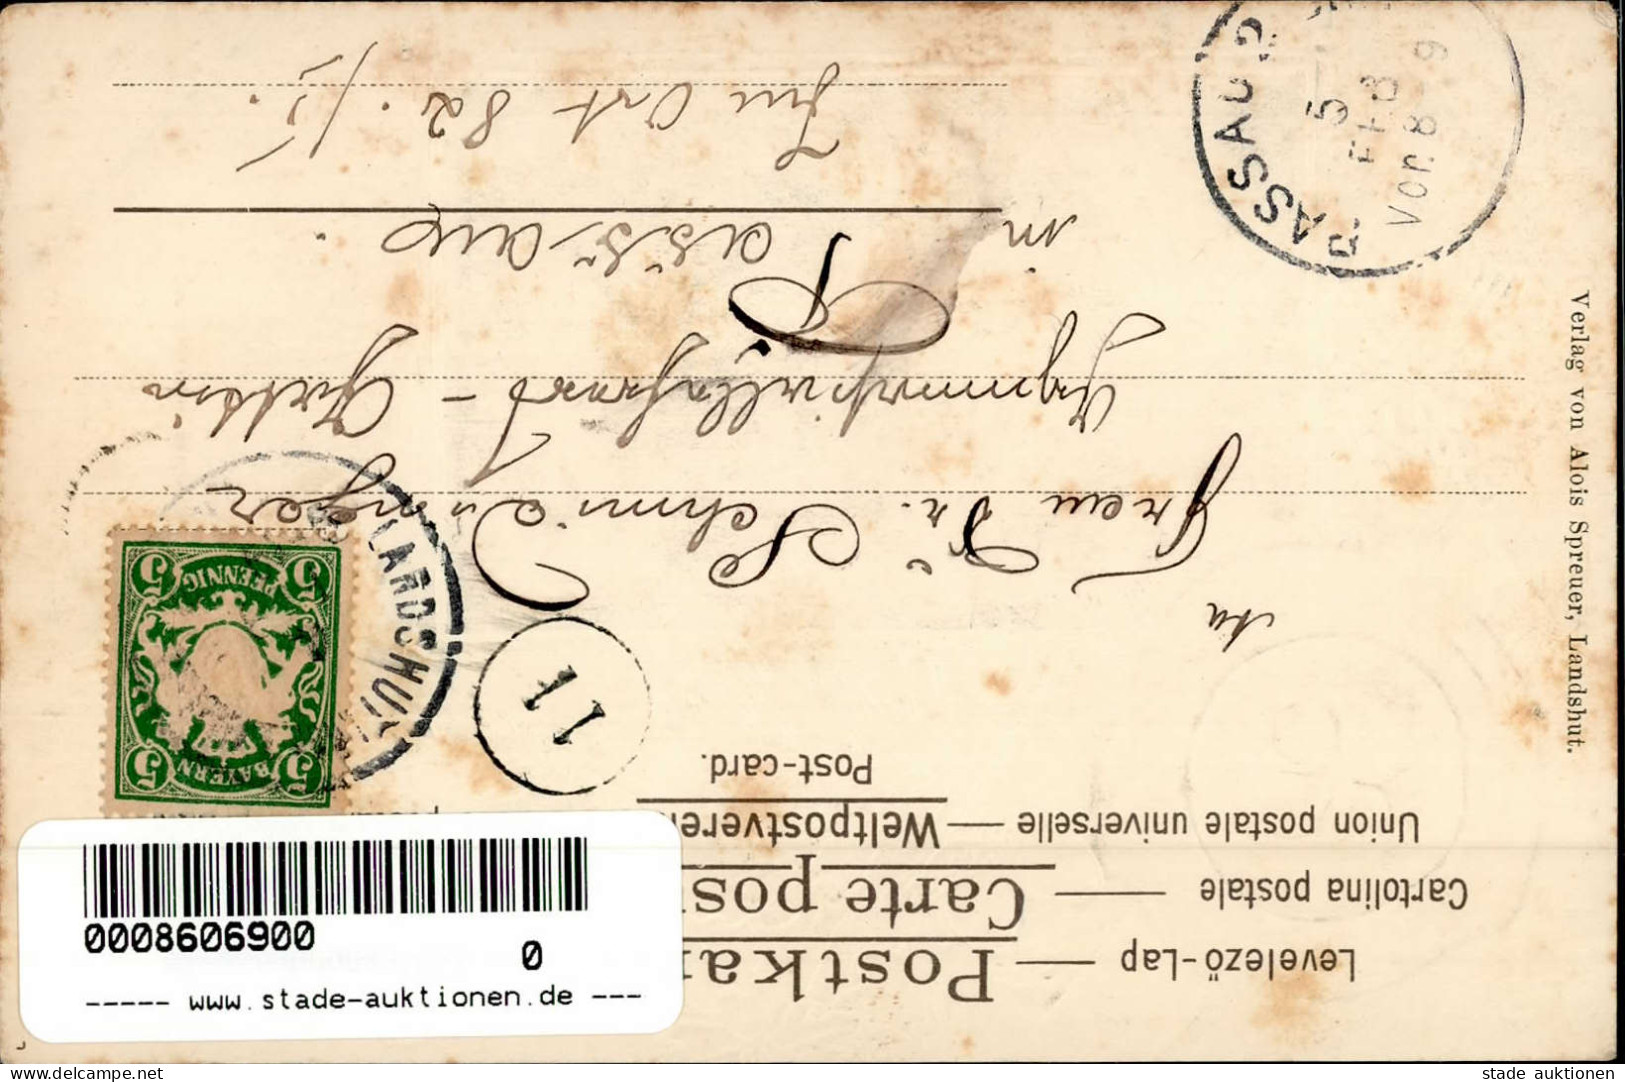 Levelező-Lap — Postka
Cartolina postale — Carte pos
Union postale universelle — Weltpostverein
Post-card.
An
Frau Dr. Schmidinger
Gattin
in Passau.
Im Ort 82./I.
Verlag von Alois Spreuer, Landshut.
PASSAU 2
5
FEB
Vor. 8-9
LANDSHUT
11
BAYERN
5 5
PFENNIG
5 5
0008606900
0
----- www.stade-auktionen.de ---
https://www.delcampe.net
stade auktionen